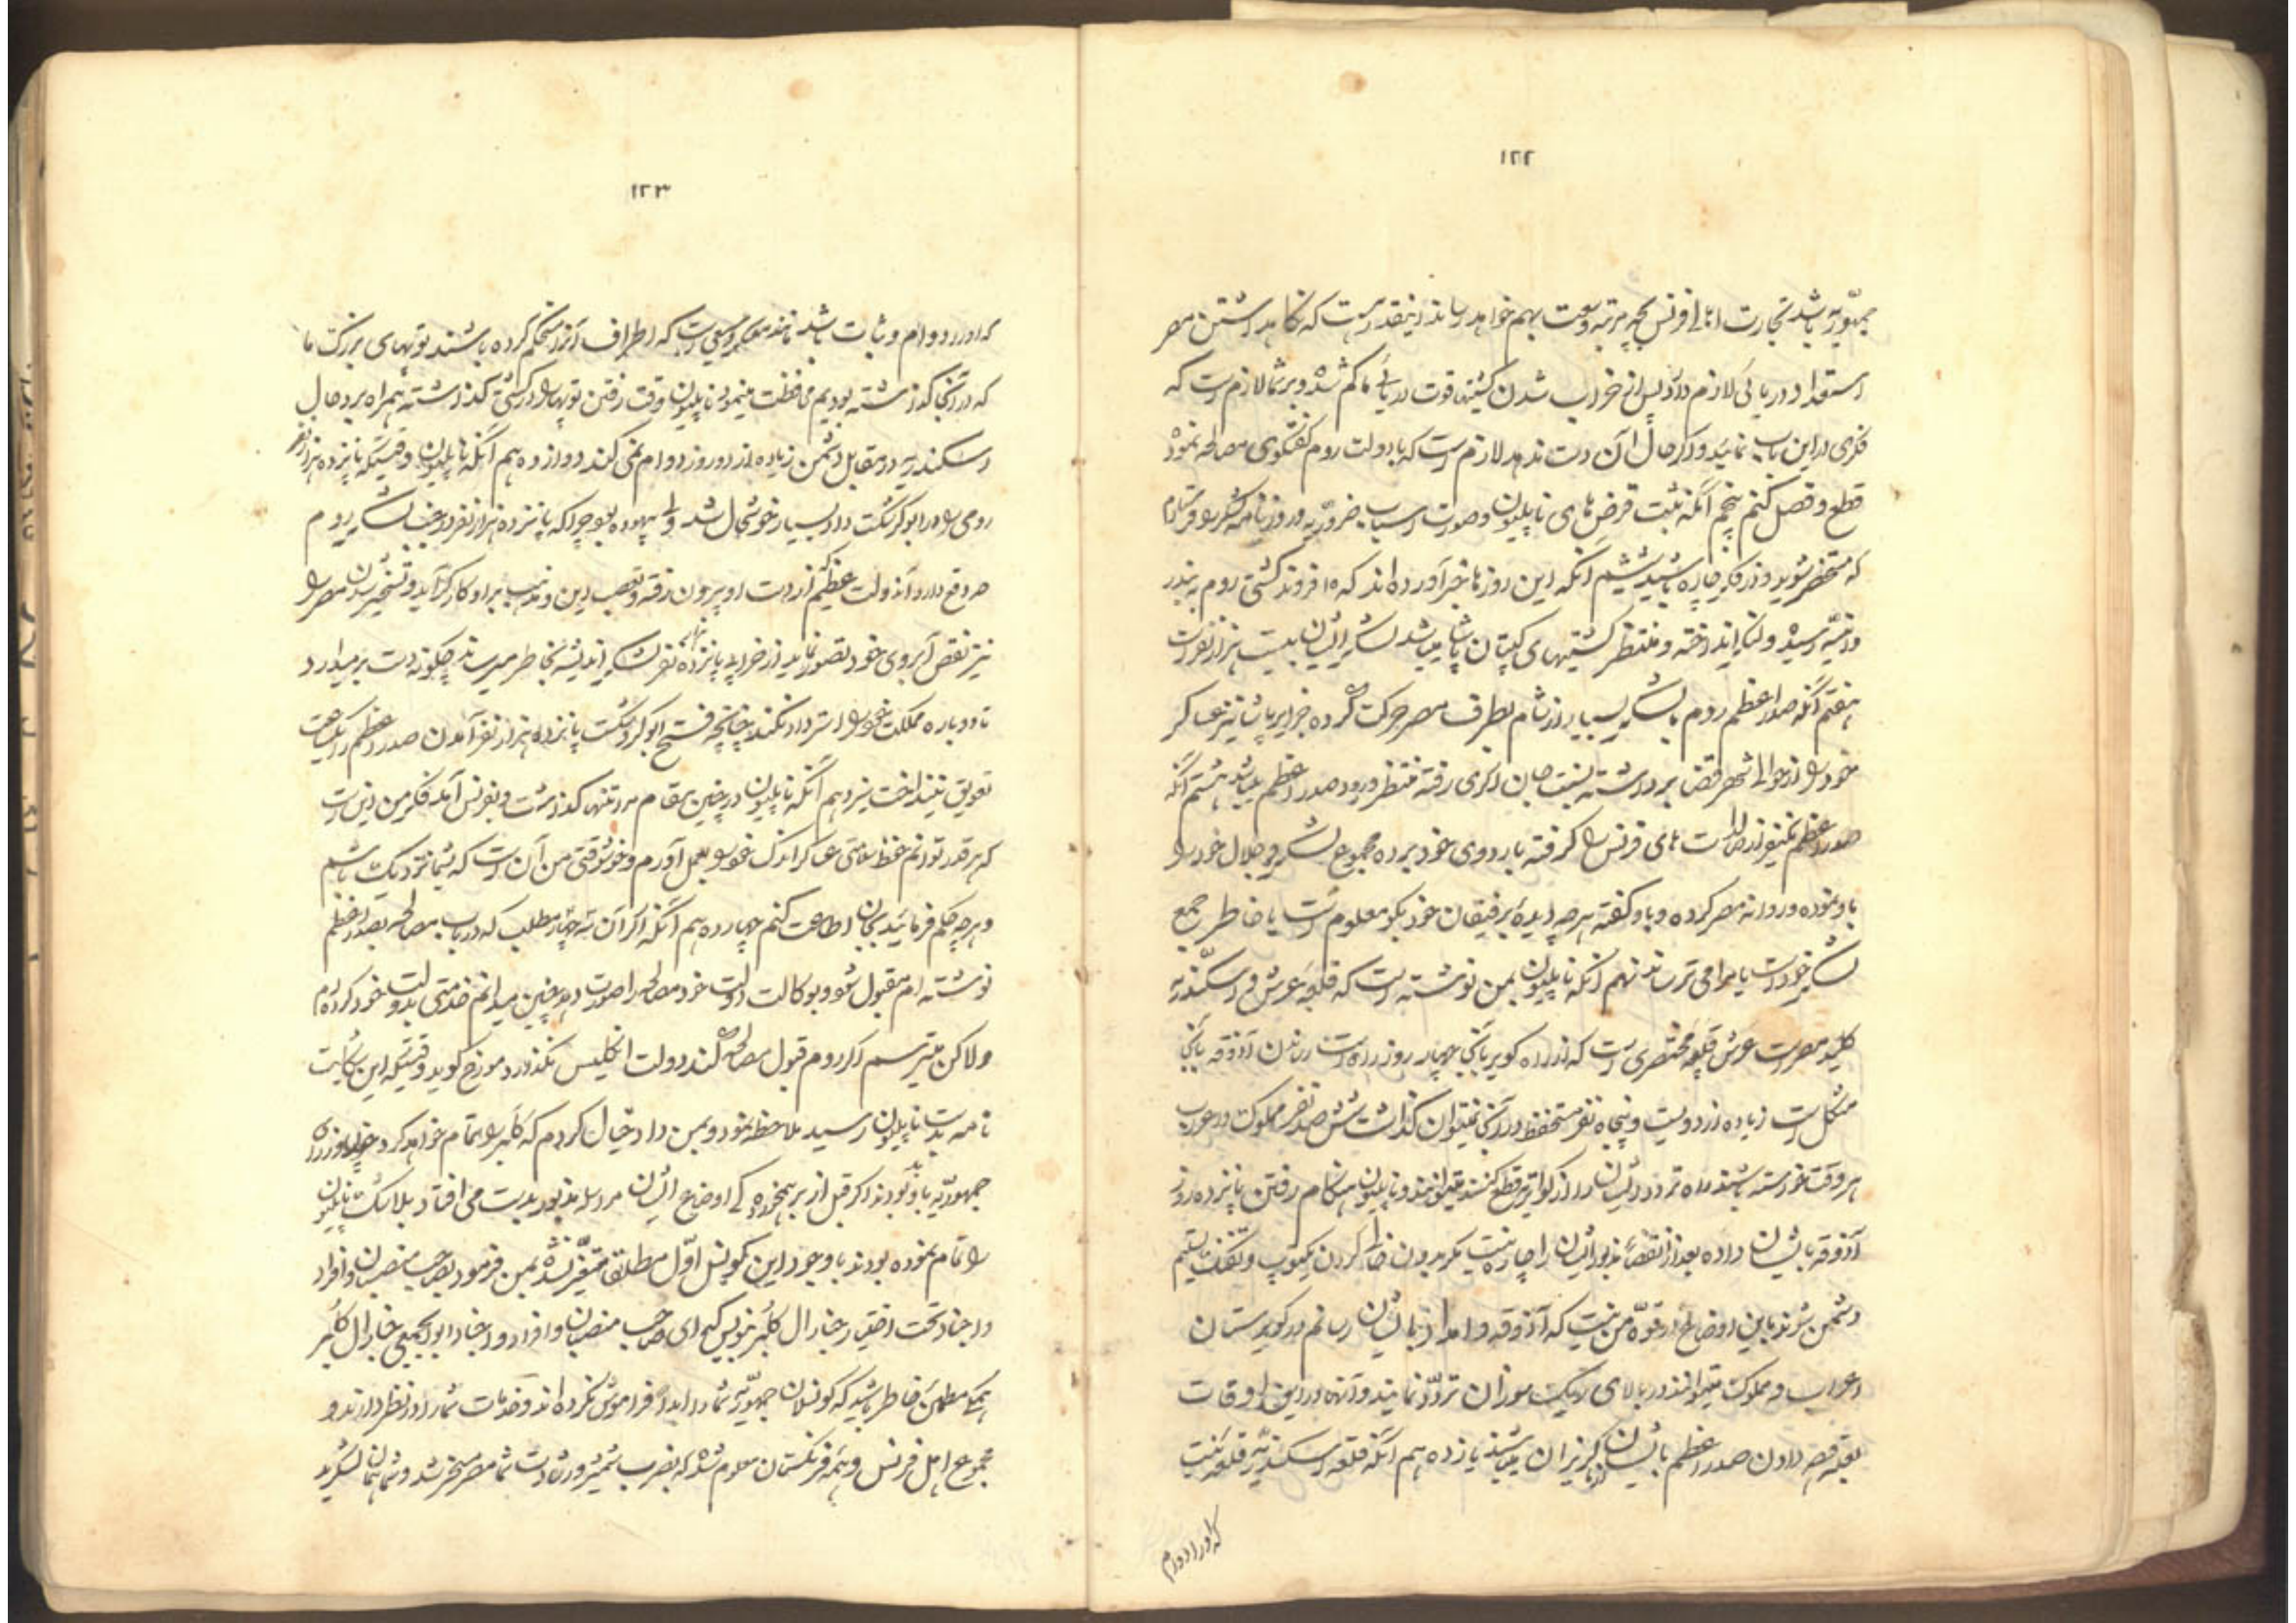 ۱۲۲
جمهوریه باشد تجارت اهالی فرنس بچه مرتبه وسعت بهم خواهد رساند اینقدر هست که نگاهداشتن مصر
استعداد دریائی لازم دارد پس از خراب شدن کشتیها قوت دریائی ما کم شده و بر شما لازم است که
فکری در این باب نمائید و اگر حال آن دست ندهد لازم است که با دولت روم گفتگوی مصالحه نموده
قطع و فصل کنم پنجم آنکه ثبت قرض‌های ناپلیون و صورت اسباب ضروریه و روزنامه لشکر را فرستادم
که مستحضر شوید و در فکر چاره باشید ششم آنکه این روزها خبر آورده‌اند که ۱۵ فروند کشتی روم به بندر
دمیه رسیده و لنگر انداخته و منتظر کشتیهای کپتان پاشا میباشد لشکر ایشان بیست هزار نفر است
هفتم آنکه صدر اعظم روم با لشکر بسیار از شام بطرف مصر حرکت کرده جزایر پاشا نیز عساکر
خود را از حوالی شهر برداشته رفته منتظر ورود صدر اعظم میباشد هشتم آنکه
صدر اعظم یکنفر از های فرنس را گرفته باردوی خود برده مجموع لشکر و جلال خود را
باو نموده و روانه مصر کرده و باو گفته هر چه دیده برفیقان خود بگو معلوم است یا خاطر جمع
لشکر خود است یا مرا می ترساند نهم آنکه ناپلیون بمن نوشته است که قلعه عرش و اسکندریه
کلید مصر است عرش قلعه مختصری است که از راه کویر تا آنجا چهار روز راه است رساندن آذوقه بآنجا
مشکل است زیاده از دویست و پنجاه نفر مستحفظ در آنجا نمیتوان گذاشت ششصد نفر مملوک و اعراب
هر وقت خواسته باشند راه تردد ایشان را از قطع کنند میتوانند و ناپلیون هنگام رفتن پانزده روز
آذوقه بایشان داده بعد از انقضاء مذبور ایشان را چاره نیست مگر بدون خالی کردن یکتوپ و تفنگ تسلیم
دشمن شوند باین اوضاع در قوه من نیست که آذوقه و امداد بایشان رسانم در کویرستان
اعراب و مملوک میتوانند در بالای ریگ سوزان تردد نمایند و آنها در این اوقات
بعلت دادن صدر اعظم بایشان گریزان میباشند یازدهم آنکه قلعه اسکندریه قلعه نیست
که او را دوام
۱۲۳
که او را دوام و ثبات باشد مانند معسکر وسیعی است که اطراف آنرا مستحکم کرده باشند توپهای بزرگ ما
که در آنجا گذاشته بودیم محافظت مینمود ناپلیون وقت رفتن توپها را در کشتی گذاشته همراه برد حال
اسکندریه در مقابل دشمن زیاده از دو روز دوام نمی کند دوازدهم آنکه ناپلیون وقتیکه پانزده هزار نفر
رومی را در ابوکر شکست داد بسیار خوشحال شد ولی بیهوده بود چرا که پانزده هزار نفر در جنب لشکر روم
چه وقع دارد آندولت عظیم از دست او بیرون رفته و تعصب دین و مذهب برای او کارگر آید و تسخیر شدن مصر را
نیز نقص آبروی خود تصور نماید از خرابی پانزده هزار نفر لشکر چه اندیشه بخاطر میرساند چگونه دست بر میدارد
تا دوباره مملکت خود را استرداد نکند چنانچه فتح ابوکر و شکست پانزده هزار نفر آمدن صدر اعظم را یکساعت
تعویق نینداخت سیزدهم آنکه ناپلیون در چنین مقام مرا تنها گذاشت و بفرنس آمد فکر من این است
که هر قدر توانم حفظ سلامتی عساکر اندک خود را بعمل آورم و خوشوقتی من آن است که بشما نزدیک باشم
و هر چه حکم فرمائید بجان اطاعت کنم چهاردهم آنکه اگر آن سه چهار مطلب که در باب مصالحه بصدر اعظم
نوشته ام مقبول شود و بوکالت دولت خود مصالحه را صورت دهد چنین میدانم خدمتی بدولت خود کرده‌ام
ولاکن میترسم اگر روم قبول مصالحه کند دولت انگلیس نگذارد مورخ گوید وقتیکه این شکایت
نامه بدست ناپلیون رسید ملاحظه نمود و بمن داد خیال کردم که کلبر را تمام خواهد کرد
جمهوریه باو بودند اگر قبل از برهمخوردگی اوضاع ایشان مراسله مذبور بدست می افتاد بلاشک ناپلیون
را تمام نموده بودند با وجود این کونسل اول مطلقا متغیر نشده بمن فرمود بصاحب منصبان و افراد
و اجناد تحت اختیار جنارال کلبر بنویس که ای صاحب منصبان و افراد و اجناد ابوابجمعی جنارال کلبر
همگی مطمئن خاطر باشید که کونسلان جمهوریه شما را ابداً فراموش نکرده اند و خدمات شما را در نظر دارند و
مجموع اهل فرنس و همه فرنگستان معلوم شده که بضرب شمشیر و رشادت شما مصر مسخر شد و شما همان لشکرید